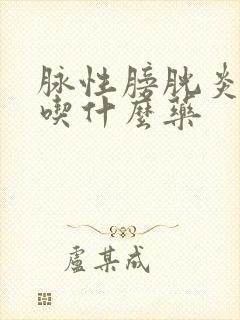 脉性膀胱炎
喫什麼藥
盧某成